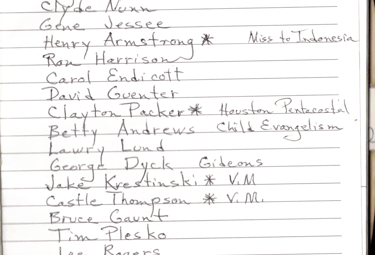 Clyde Nunn
Gene Jessee
Henry Armstrong * Miss to Indonesia
Ron Harrison
Carol Endicott
David Guenter
Clayton Packer * Houston Pentacostal
Betty Andrews Child Evangelism
Lawry Lund
George Dyck Gideons
Jake Krestinski * V.M
Castle Thompson * V.M.
Bruce Gaunt
Tim Plesko
Lee Rogers